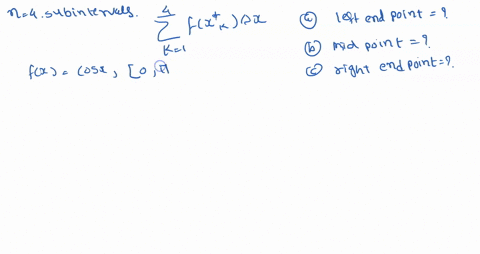 n=4 subintervals. 4∑K=1 f(x*K) Δx
f(x) = cosx, [0, π
ⓐ left end point = ?
ⓑ mid point = ?
ⓒ right end point = ?